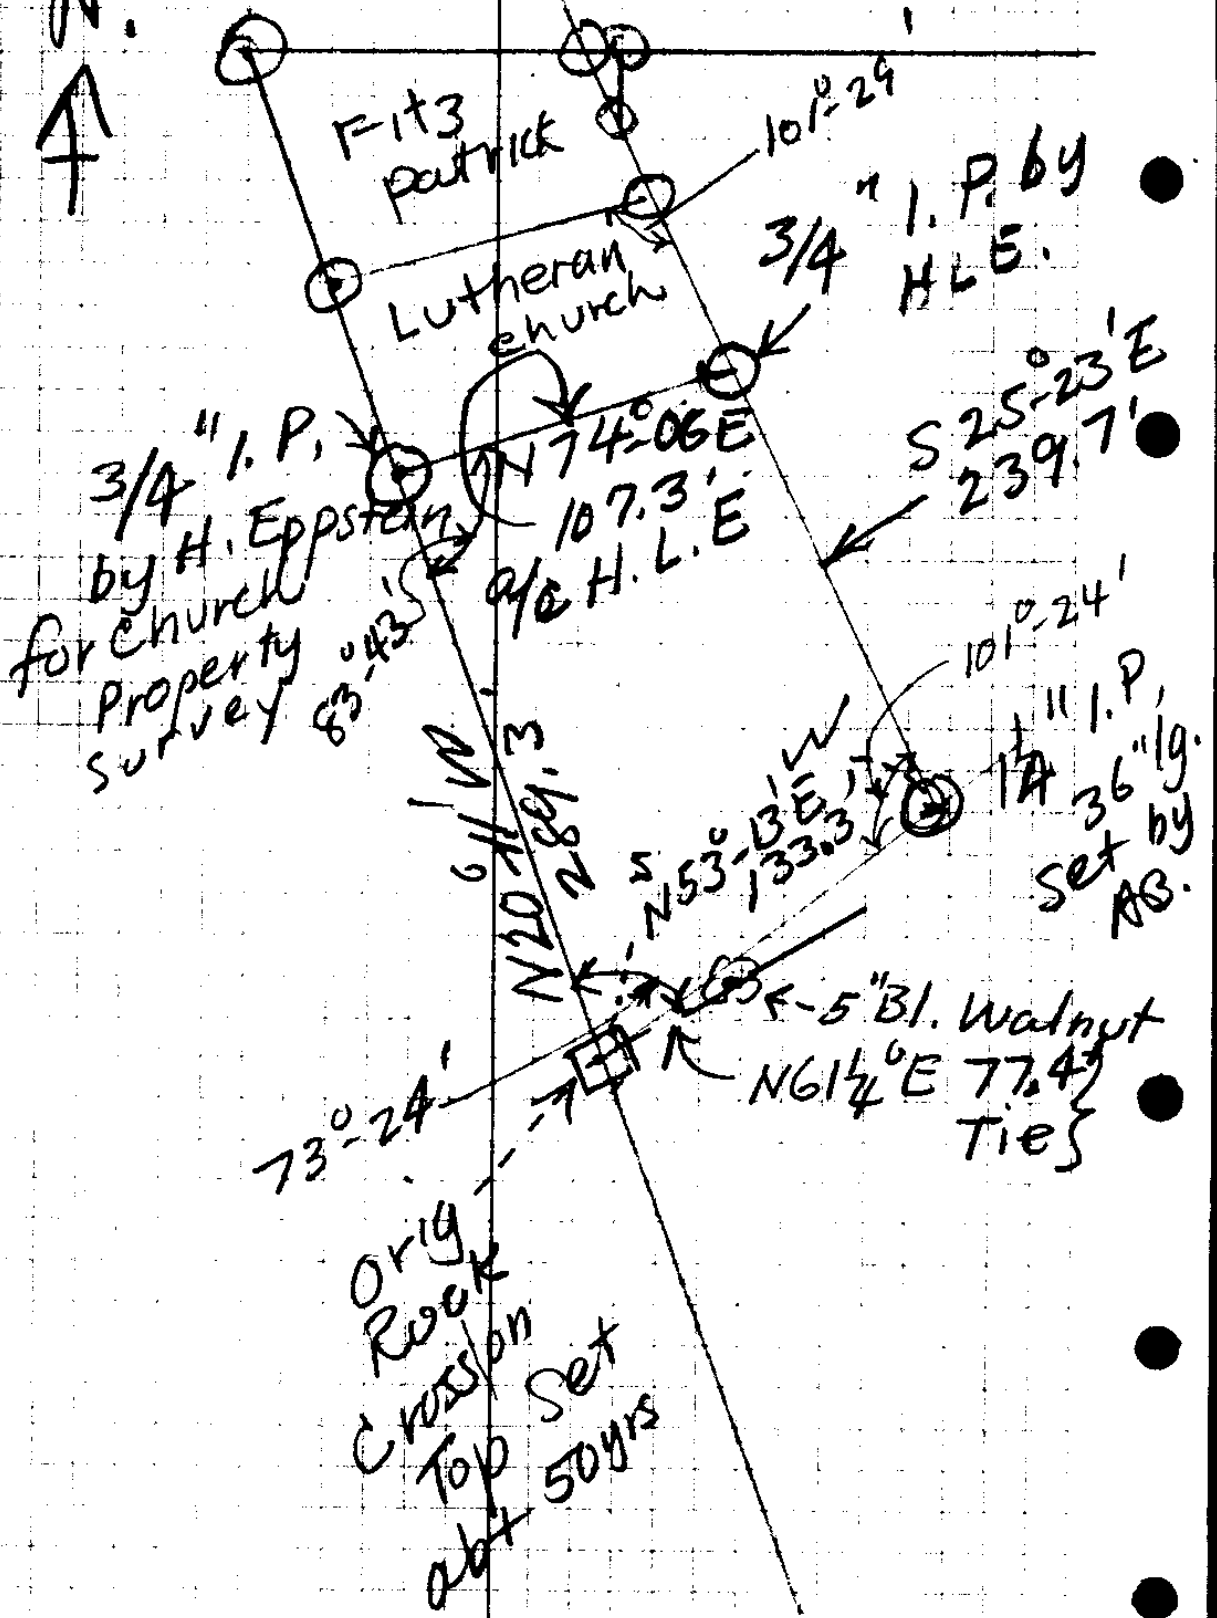 N.
Fitz
patrick
101°-29
3/4" I. P. by
H L E.
Lutheran
church
S 25°-23' E
239.7'
3/4" I. P.
by H. Eppstein
for church
Property
survey
N 74°-06 E
107.3'
a/c H. L. E
83°-43'
101°-24'
1 1/4" I. P.
36" lg.
Set by
AB.
N20°-41' W
289.3
S
W
N53°-13' E
133.3'
5" Bl. Walnut
N61 1/4° E 77.4'
Tie
73°-24'
Orig
Rock
Cross on
Top Set
abt 50yrs